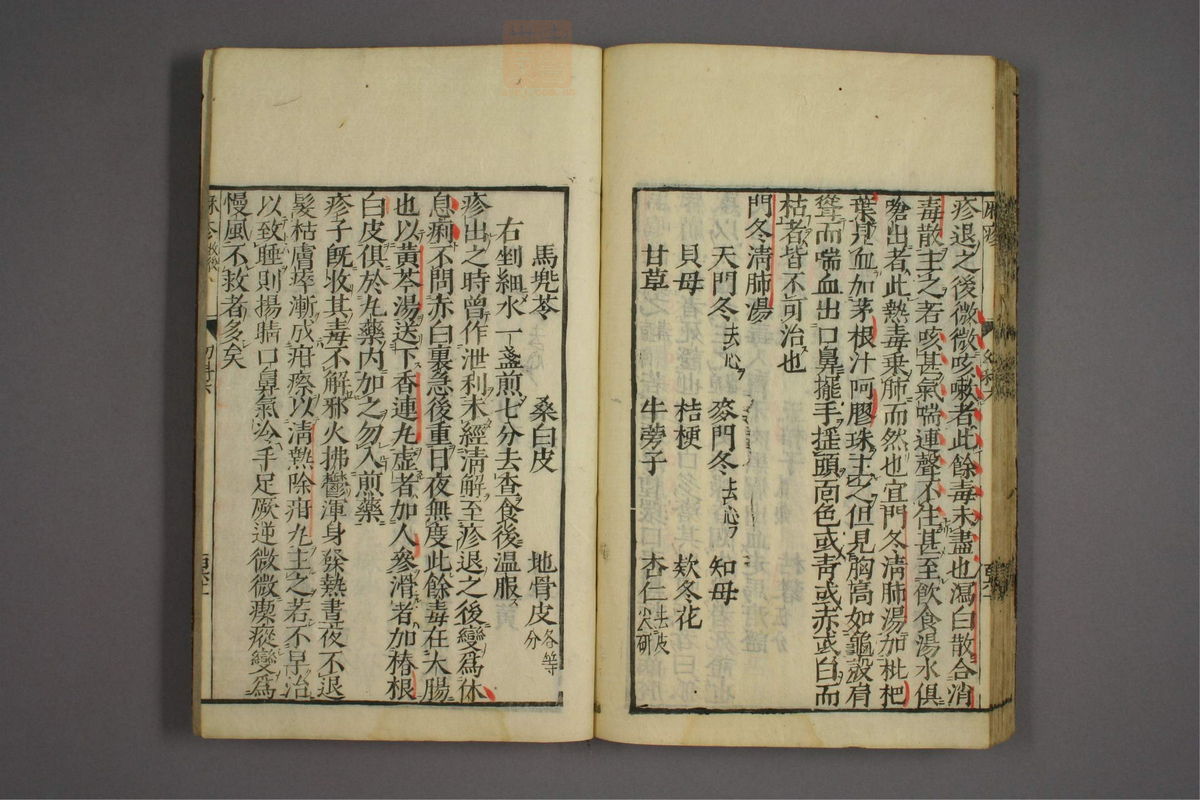 疹退之後微微咳嗽者此餘毒未盡也瀉白散合消
毒散主之若咳甚氣喘連聲不住甚至飲食湯水俱
嗆出者此熱毒乘肺而然也宜門冬清肺湯加枇杷
葉見血加茅根汁阿膠珠主之但見胸高如龜殼肩
聳而喘血出口鼻擺手搖頭面色或青或赤或白而
枯者皆不可治也
門冬清肺湯
天門冬去心 麥門冬去心 知母
貝母 桔梗 欵冬花
甘草 牛蒡子 杏仁去皮尖研
馬兜苓 桑白皮 地骨皮各等分
右剉細水一盞煎七分去查食後溫服
疹出之時曾作泄利未經清解至疹退之後變爲休
息痢不問赤白裏急後重日夜無度此餘毒在大腸
也以黃芩湯送下香連丸虛者加人參滑者加椿根
白皮俱於丸藥內加之勿入煎藥
疹子既收其毒不解邪火拂鬱渾身發熱晝夜不退
髮枯膚瘁漸成疳瘵以清熱除疳丸主之若不早治
以致睡則揚睛口鼻氣冷手足厥逆微微瘈瘲變爲
慢風不救者多矣